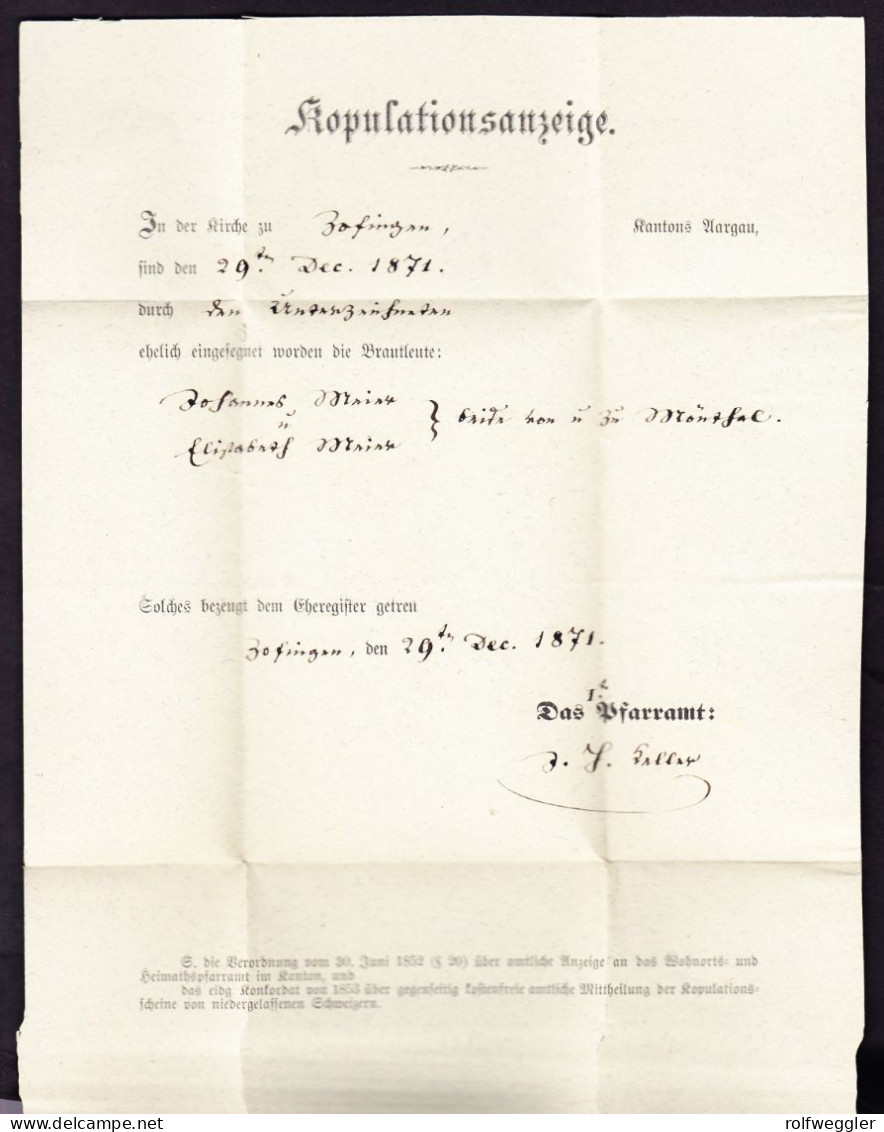 Kopulationsanzeige.
In der Kirche zu Zofingen, Kantons Aargau,
sind den 29ten Dec. 1871.
durch den Unterzeichneten
ehelich eingesegnet worden die Brautleute:
Johannes Meier
u
Elisabeth Meier
} beide von u zu Mönthal.
Solches bezeugt dem Eheregister getreu
Zofingen, den 29ten Dec. 1871.
Das Pfarramt:
J. H. Keller
S. die Verordnung vom 30. Juni 1852 (§ 20) über amtliche Anzeige an das Wohnorts- und
Heimathspfarramt im Kanton, und
das eidg. Konkordat von 1853 über gegenseitig kostenfreie amtliche Mittheilung der Kopulations-
scheine von niedergelassenen Schweizern.
rolfweggler